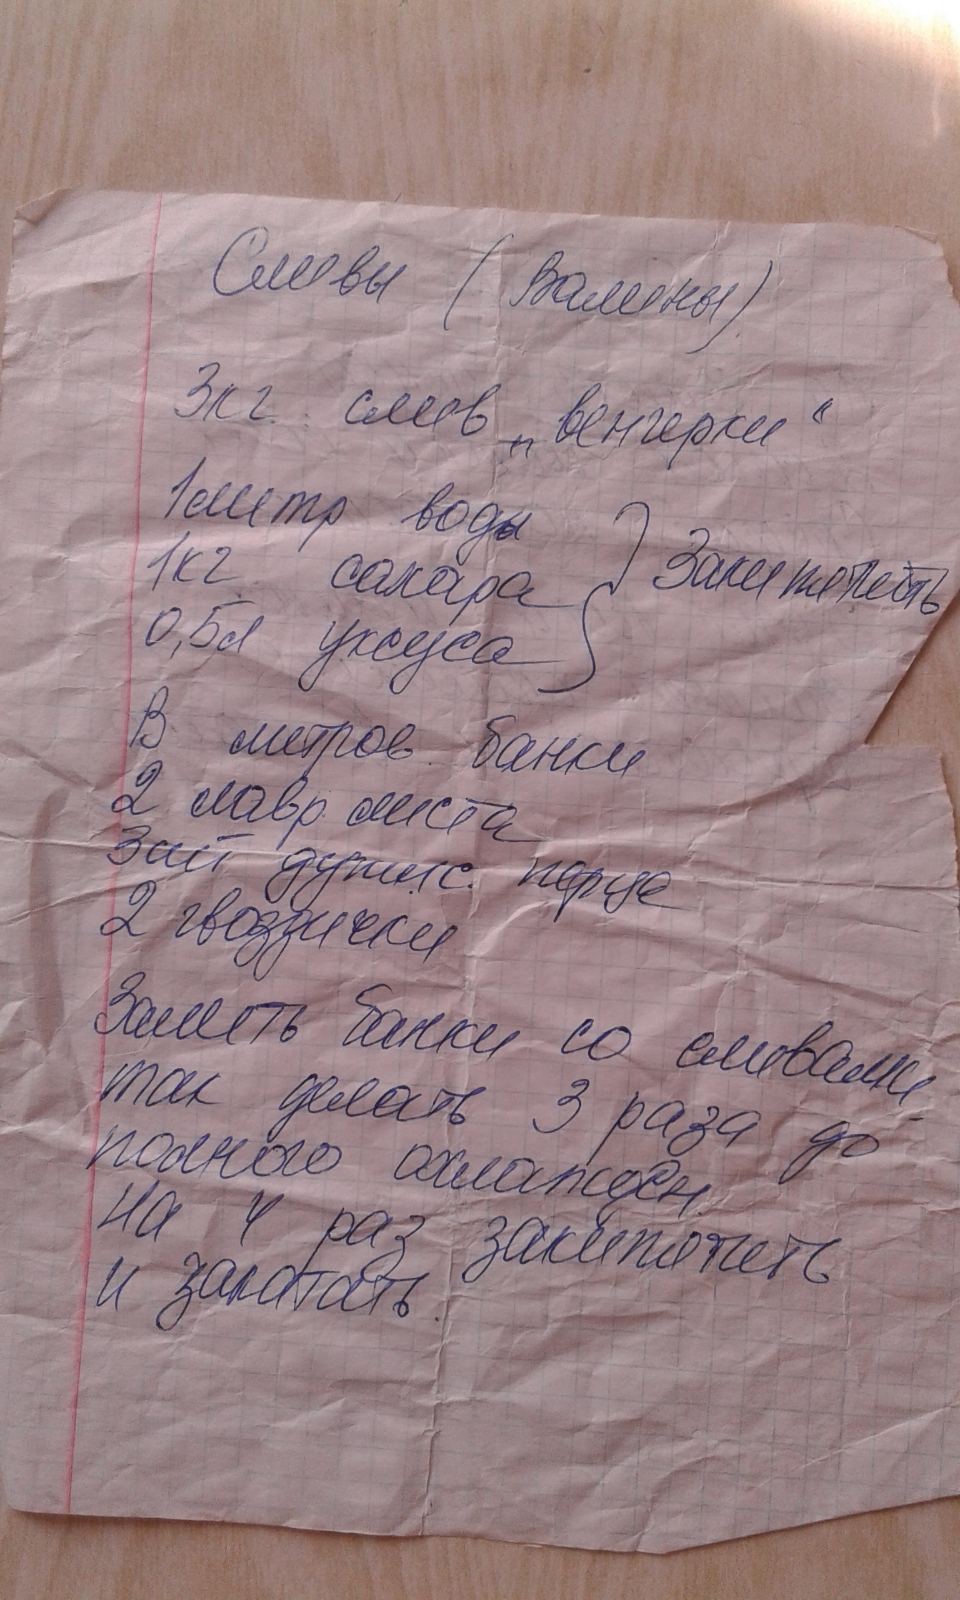 Сливы (Валины)
3кг. слив „венгерки“
1литр воды
1кг сахара } Закипятить
0,5л уксуса
В литров. банки
2 лавр. листа
3шт душис. перца
2 гвоздички
Залить банки со сливами
так делать 3 раза до
полного охлажден.
На 4 раз закипятить
и закатать.